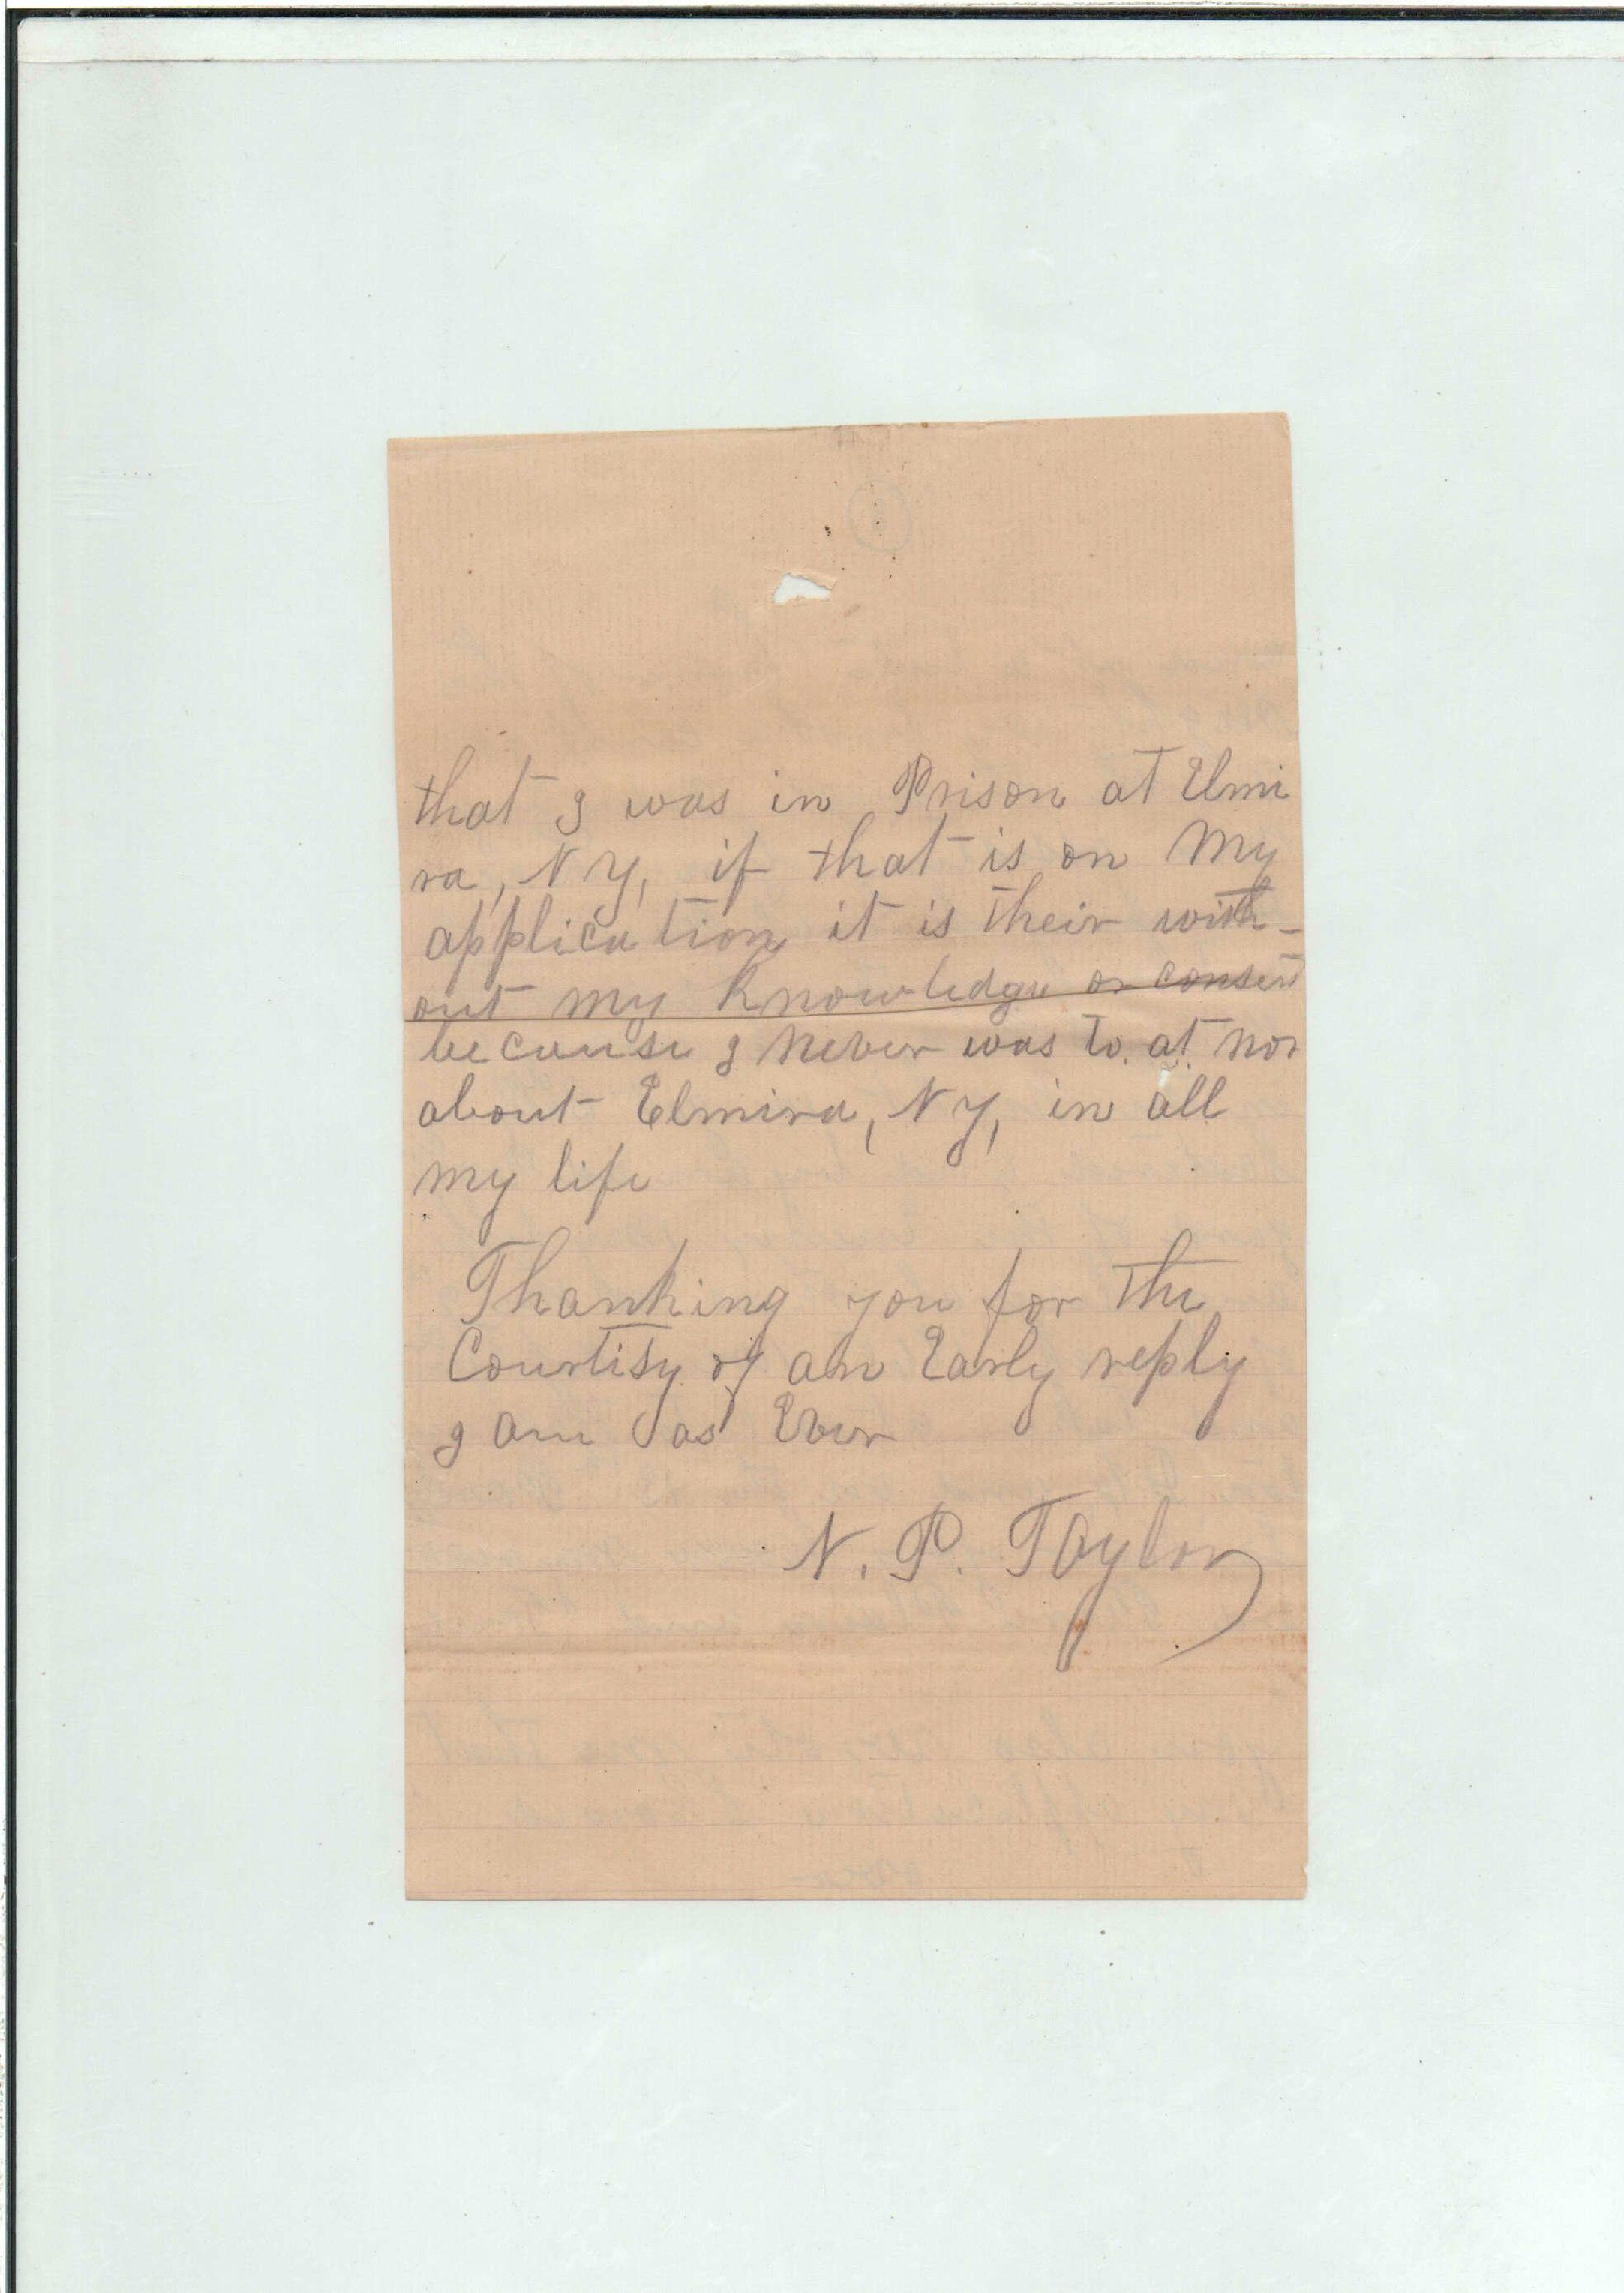 that I was in Prison at Elmi
ra, NY, if that is on My
application it is their with-
out my Knowledge or consent
because I Never was to. at. nor
about Elmira, NY, in all
my life
Thanking you for the
Courtisy of an Early reply
I am as Ever
N. P. Taylor